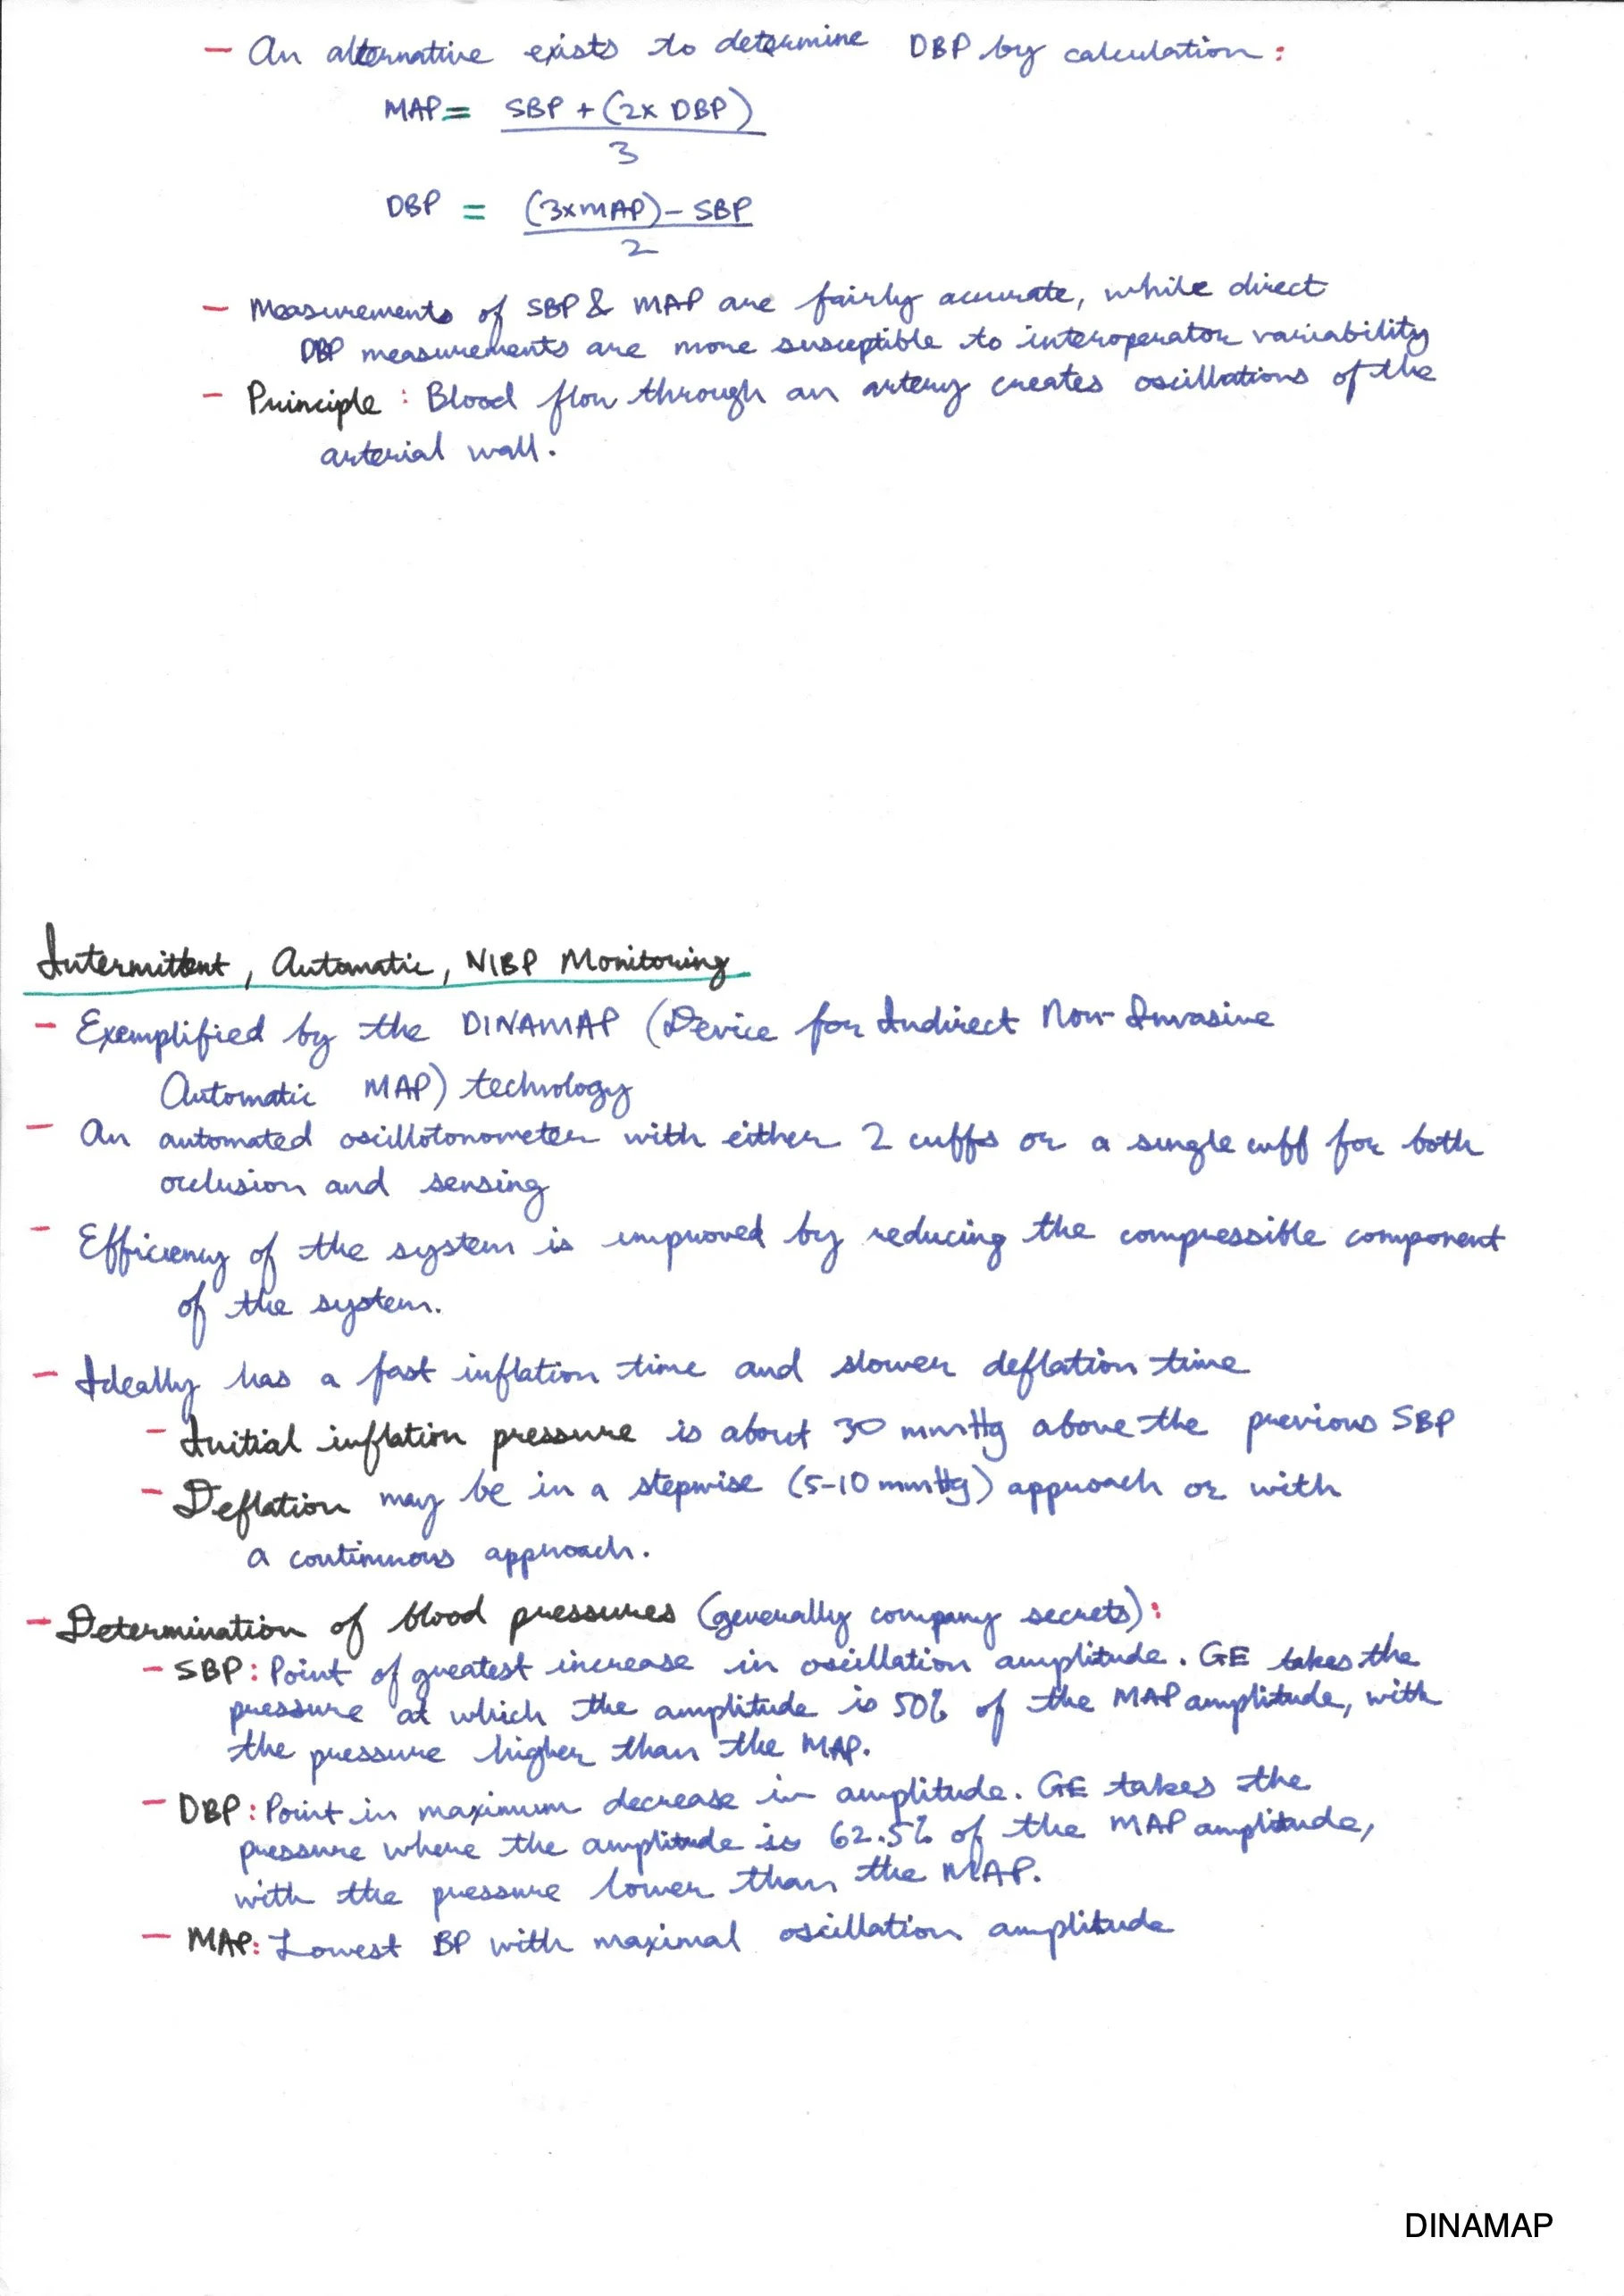 - An alternative exists to determine DBP by calculation:
MAP = SBP + (2x DBP)
3
DBP = (3xMAP) - SBP
2
- Measurements of SBP & MAP are fairly accurate, while direct
DBP measurements are more susceptible to interoperator variability
- Principle : Blood flow through an artery creates oscillations of the
arterial wall.
Intermittent, Automatic, NIBP Monitoring
- Exemplified by the DINAMAP (Device for Indirect Non-Invasive
Automatic MAP) technology
- An automated oscillotonometer with either 2 cuffs or a single cuff for both
occlusion and sensing
- Efficiency of the system is improved by reducing the compressible component
of the system.
- Ideally has a fast inflation time and slower deflation time
- Initial inflation pressure is about 30 mmHg above the previous SBP
- Deflation may be in a stepwise (5-10 mmHg) approach or with
a continuous approach.
- Determination of blood pressures (generally company secrets):
- SBP: Point of greatest increase in oscillation amplitude. GE takes the
pressure at which the amplitude is 50% of the MAP amplitude, with
the pressure higher than the MAP.
- DBP: Point in maximum decrease in amplitude. GE takes the
pressure where the amplitude is 62.5% of the MAP amplitude,
with the pressure lower than the MAP.
- MAP: Lowest BP with maximal oscillation amplitude
DINAMAP